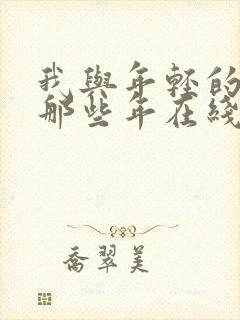 我與年輕的
那些年在綫
喬翠美